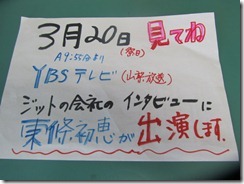 3月20日(祭日)見てね
A9:55分より
YBSテレビ(山梨放送)
ジットの会社のインタビューに
東條初恵が出演します.